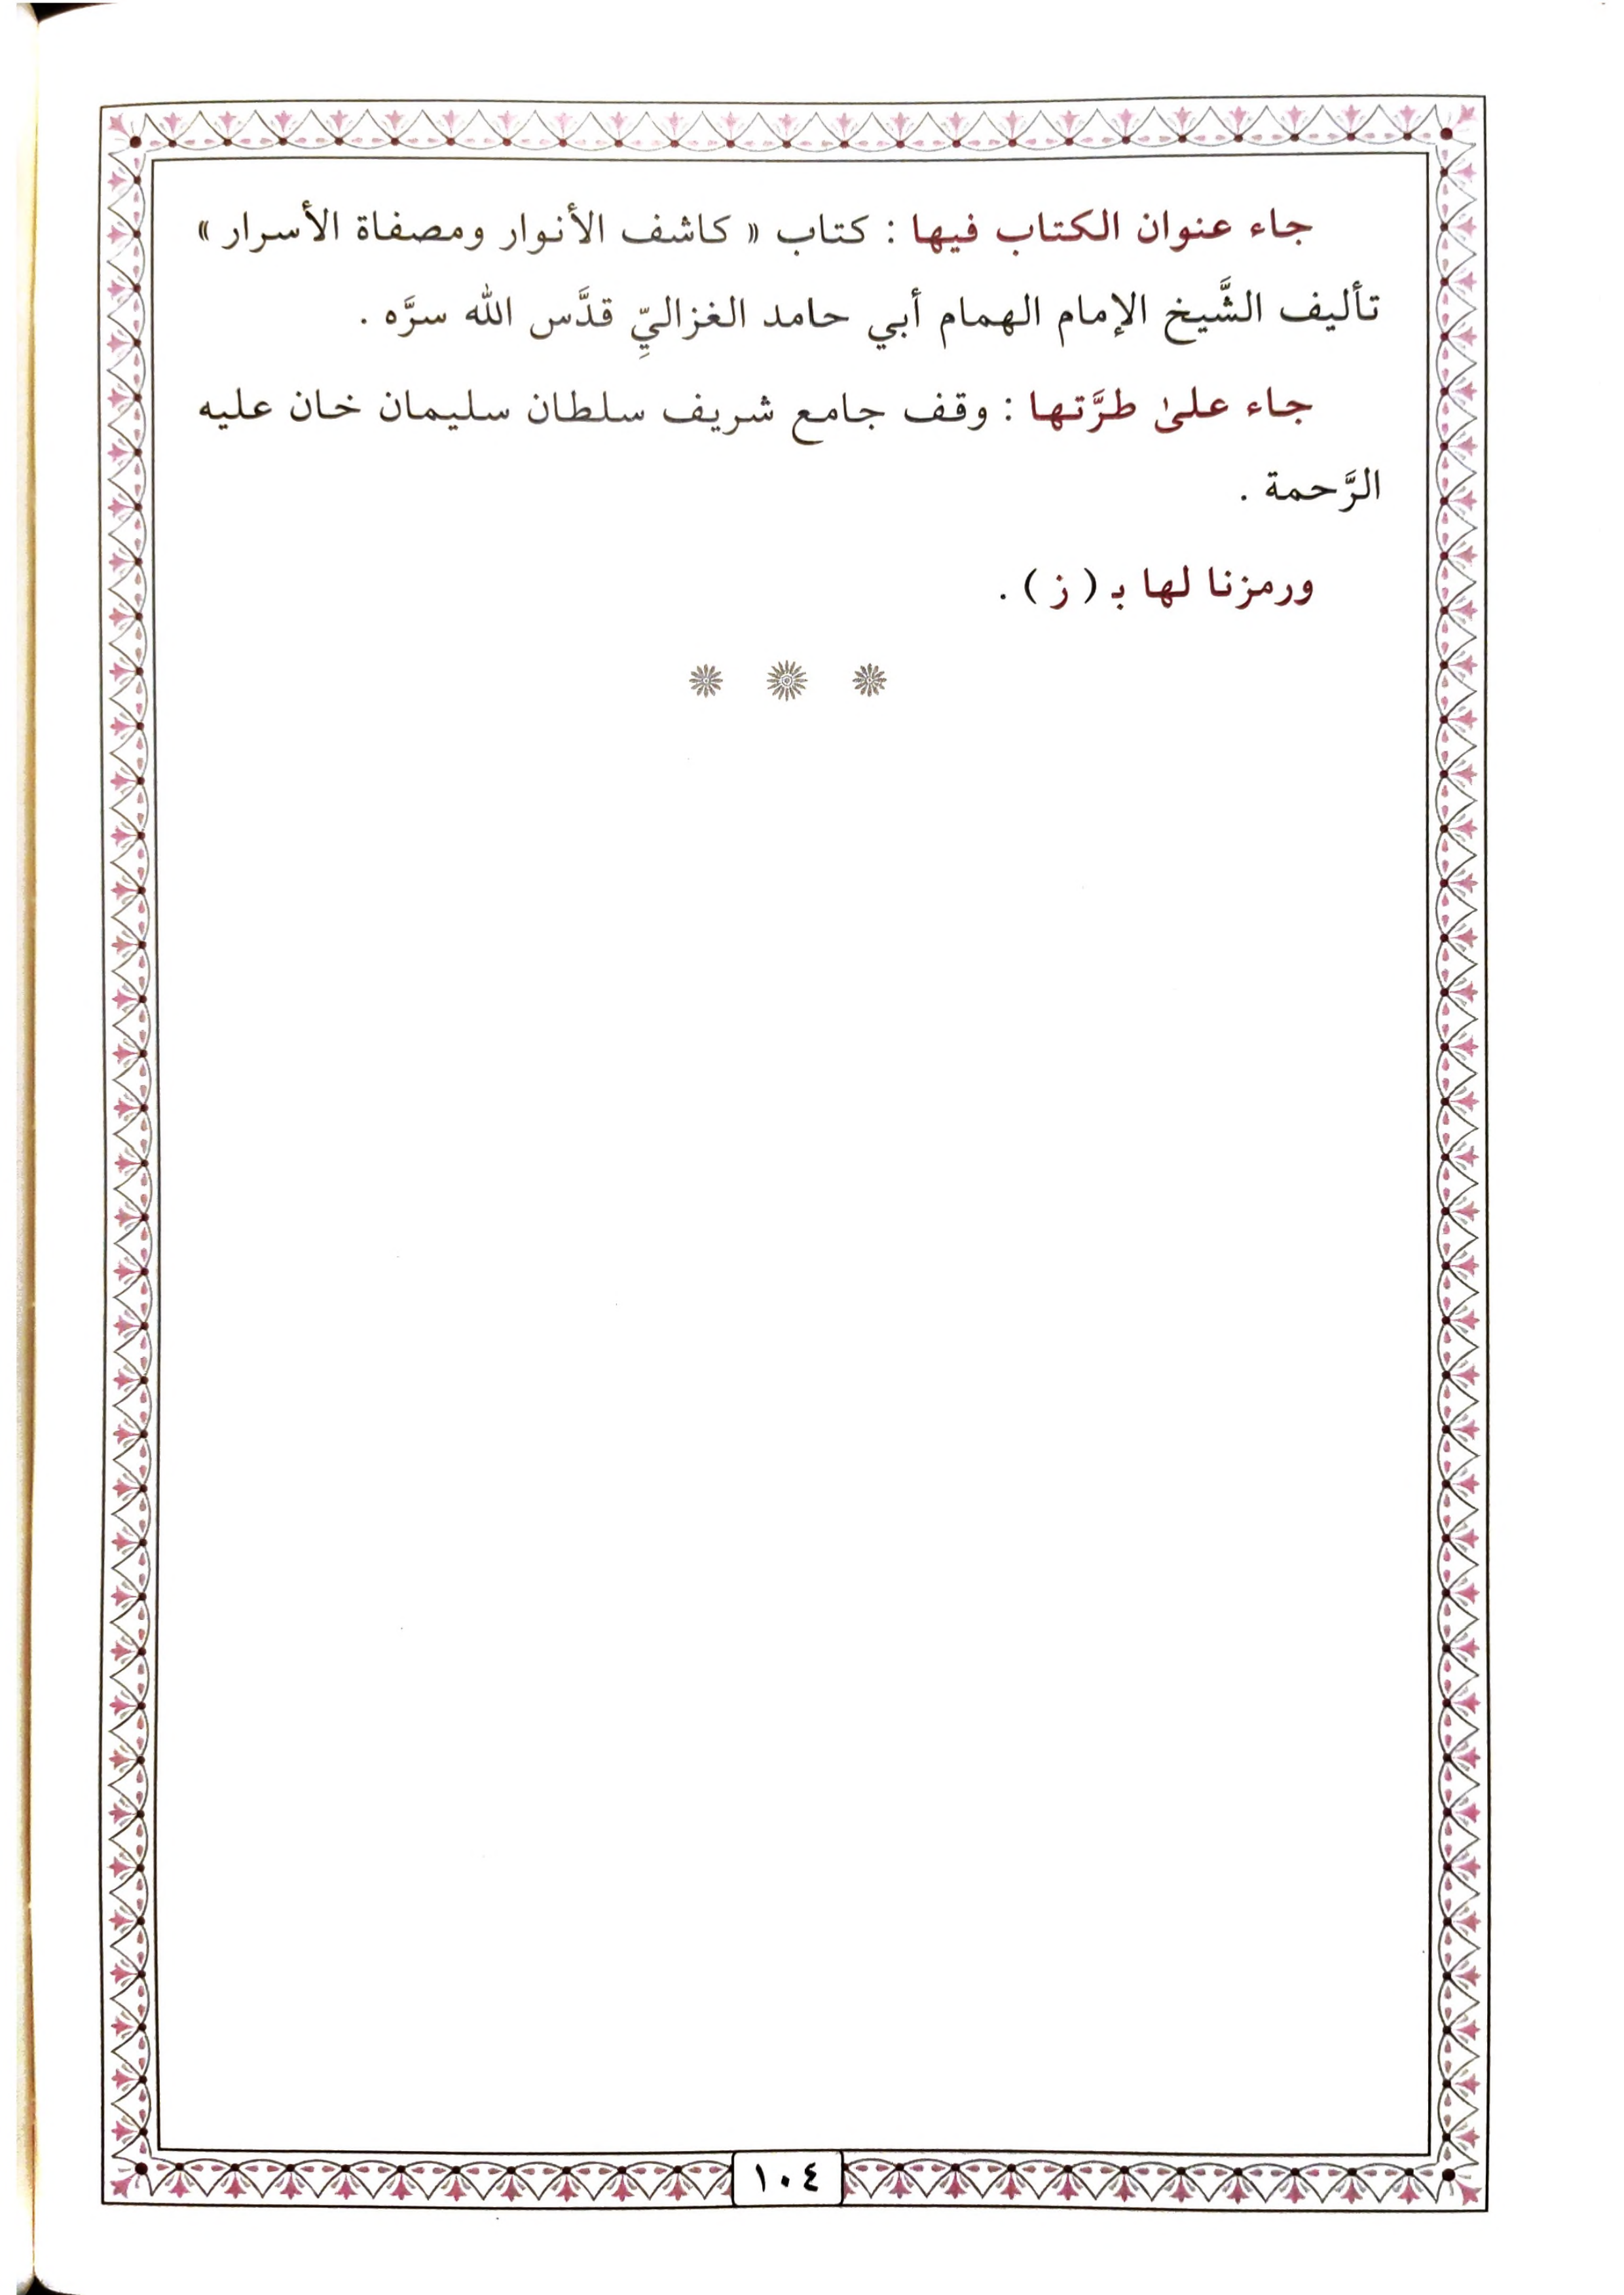 جاء عنوان الكتاب فيها : كتاب « كاشف الأنوار ومصفاة الأسرار »
تأليف الشَّيخ الإمام الهمام أبي حامد الغزاليِّ قدَّس الله سرَّه .
جاء علىٰ طرَّتها : وقف جامع شريف سلطان سليمان خان عليه
الرَّحمة .
ورمزنا لها بـ ( ز ) .
١٠٤